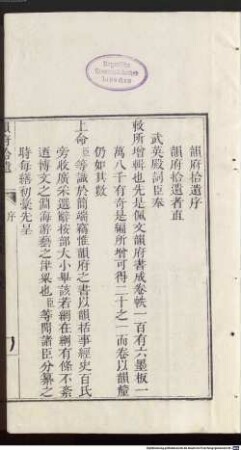 韻府拾遺序
韻府拾遺者直
武英殿詞臣奉
收所增輯也先是佩文韻府書成卷帙一百有六墨板一
萬八千有奇是編所增可得二十之一而卷以韻釐
仍如其數
上命臣等識於簡端竊惟韻府之書以韻括事經史百氏
旁收廣采選辭按部大小畢該若網在綱有條不紊
洵博文之淵海游藝之津梁也臣等閱諸臣分纂之
時每繕初藁先呈
韻府拾遺
序